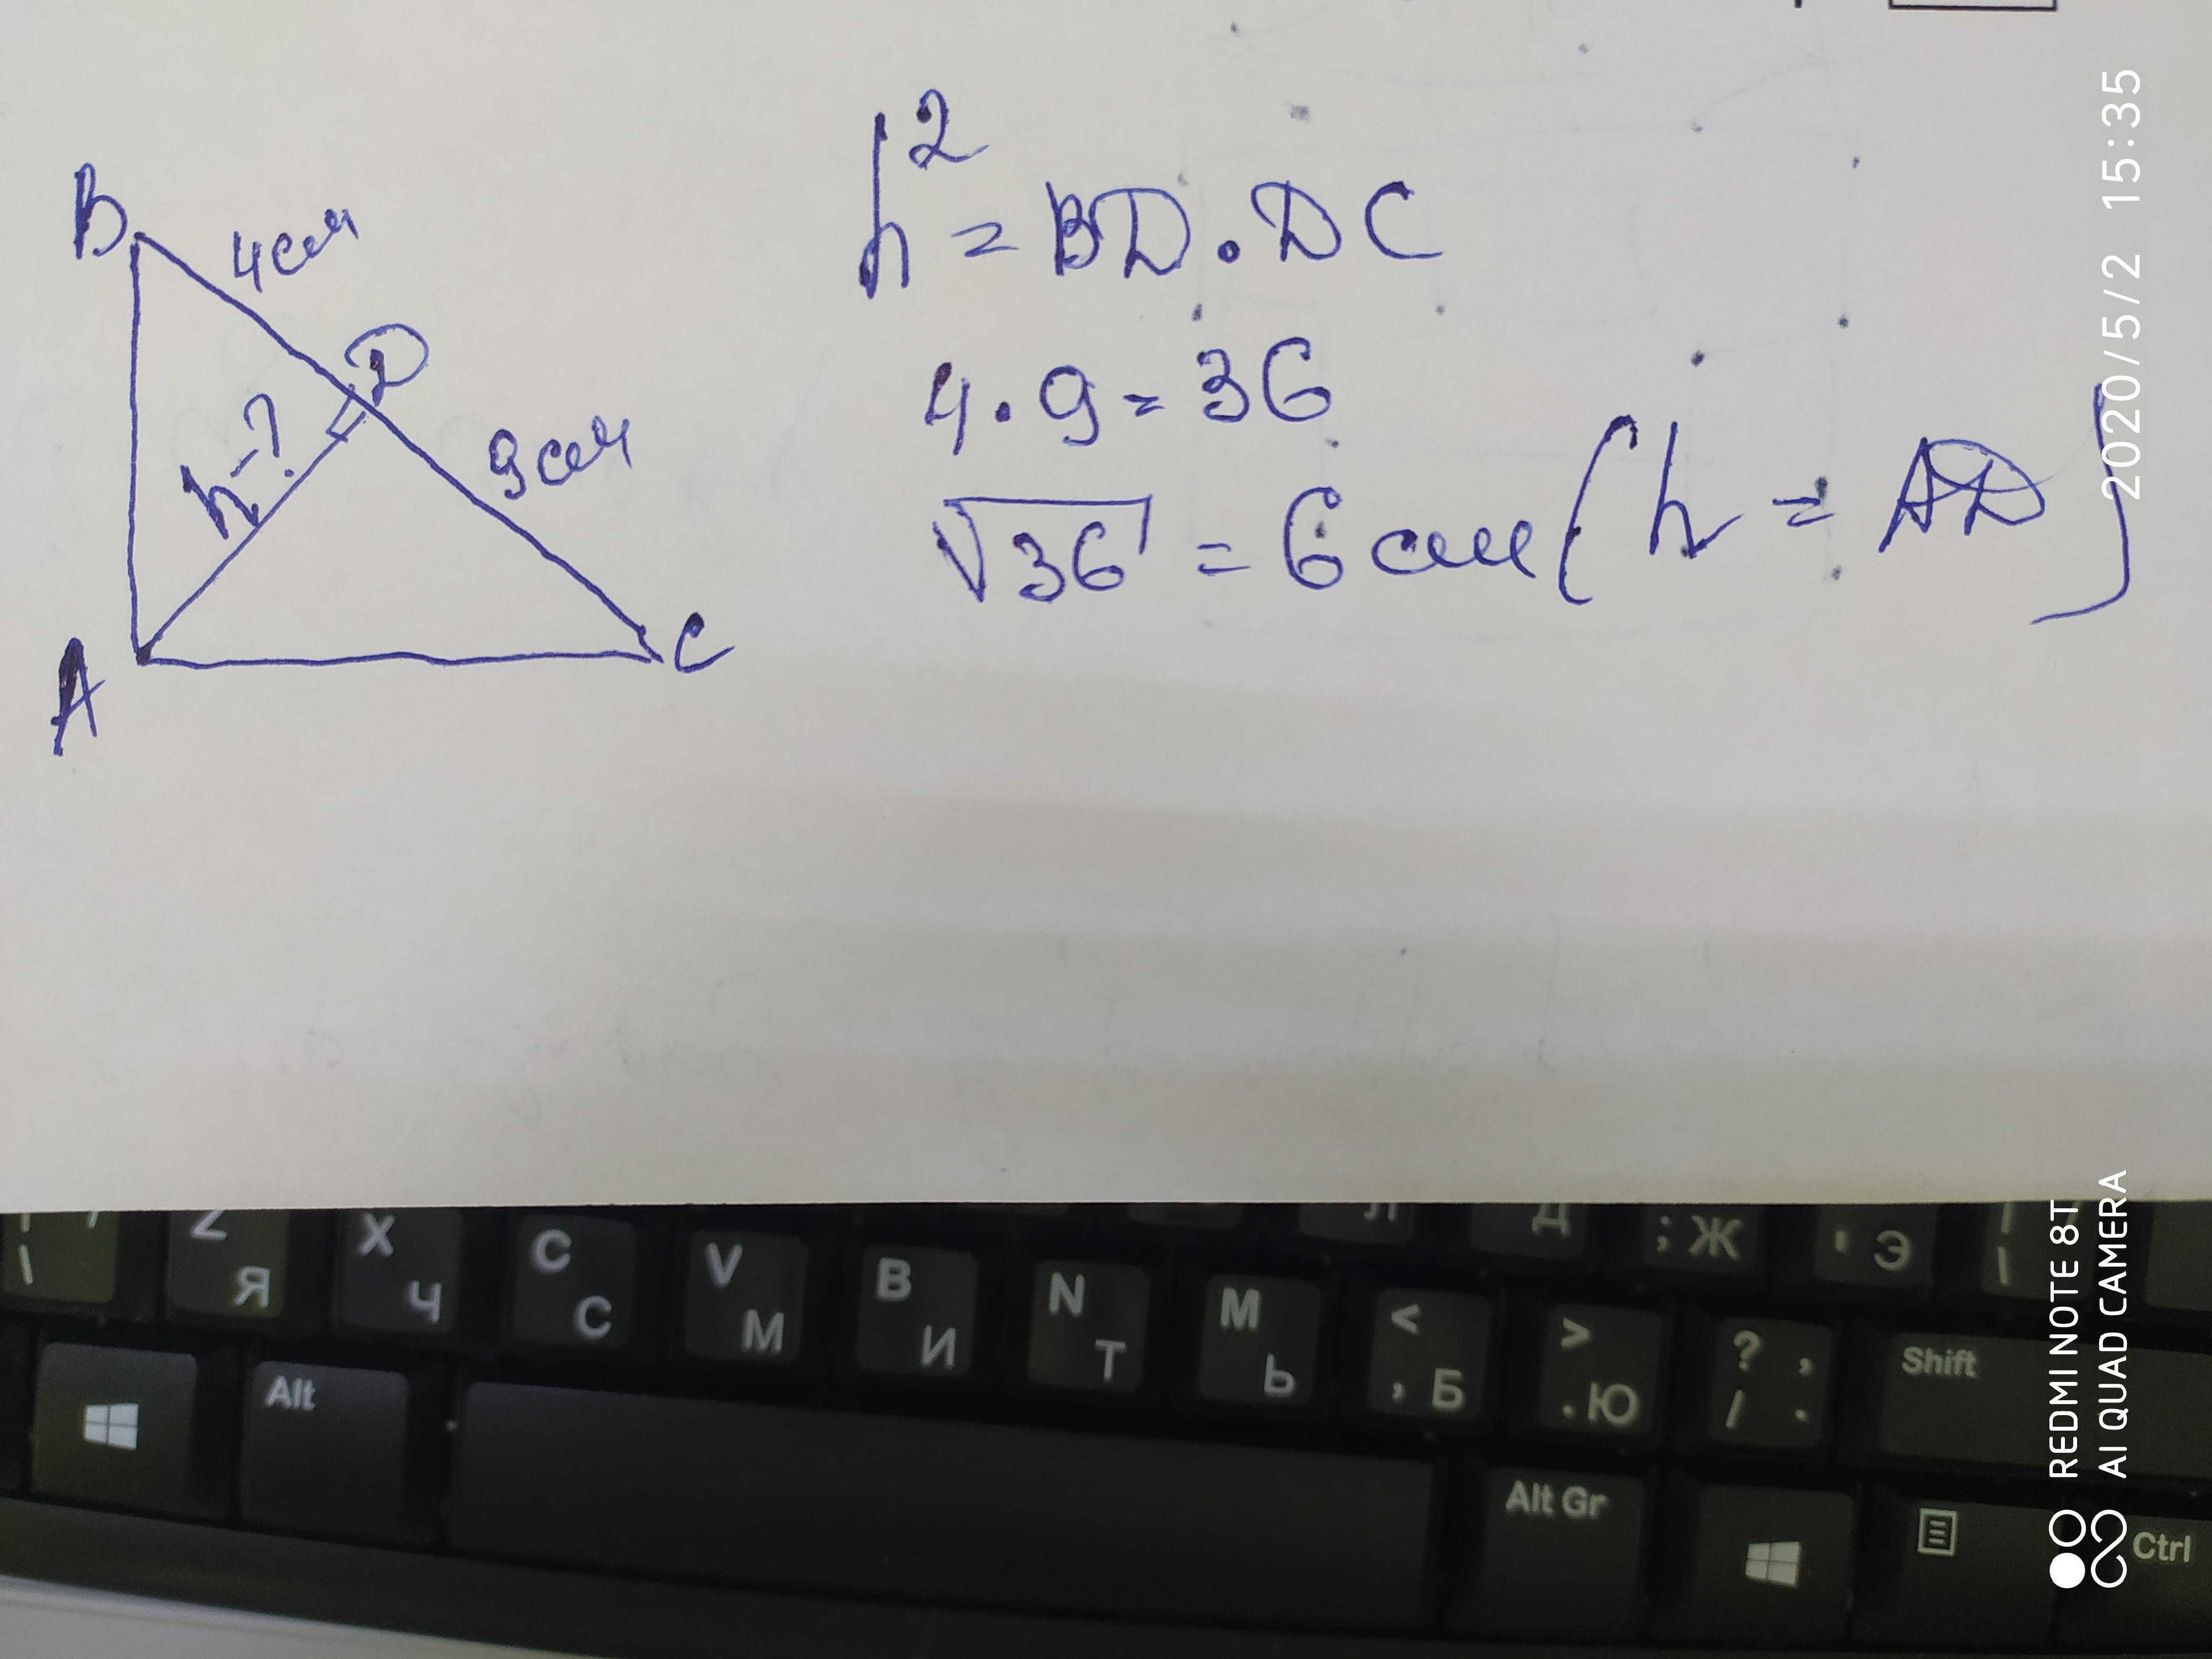 B
4см
D
h-?
9см
A
C
h² = BD · DC
4 · 9 = 36
√36 = 6 см (h = AD)
2020/5/2 15:35
Z Я
X Ч
C С
V М
B И
N Т
M Ь
< , Б
> . Ю
? , / .
Shift
Л
Д
; Ж
' Э
\
\
Alt
Alt Gr
Ctrl
REDMI NOTE 8T
AI QUAD CAMERA